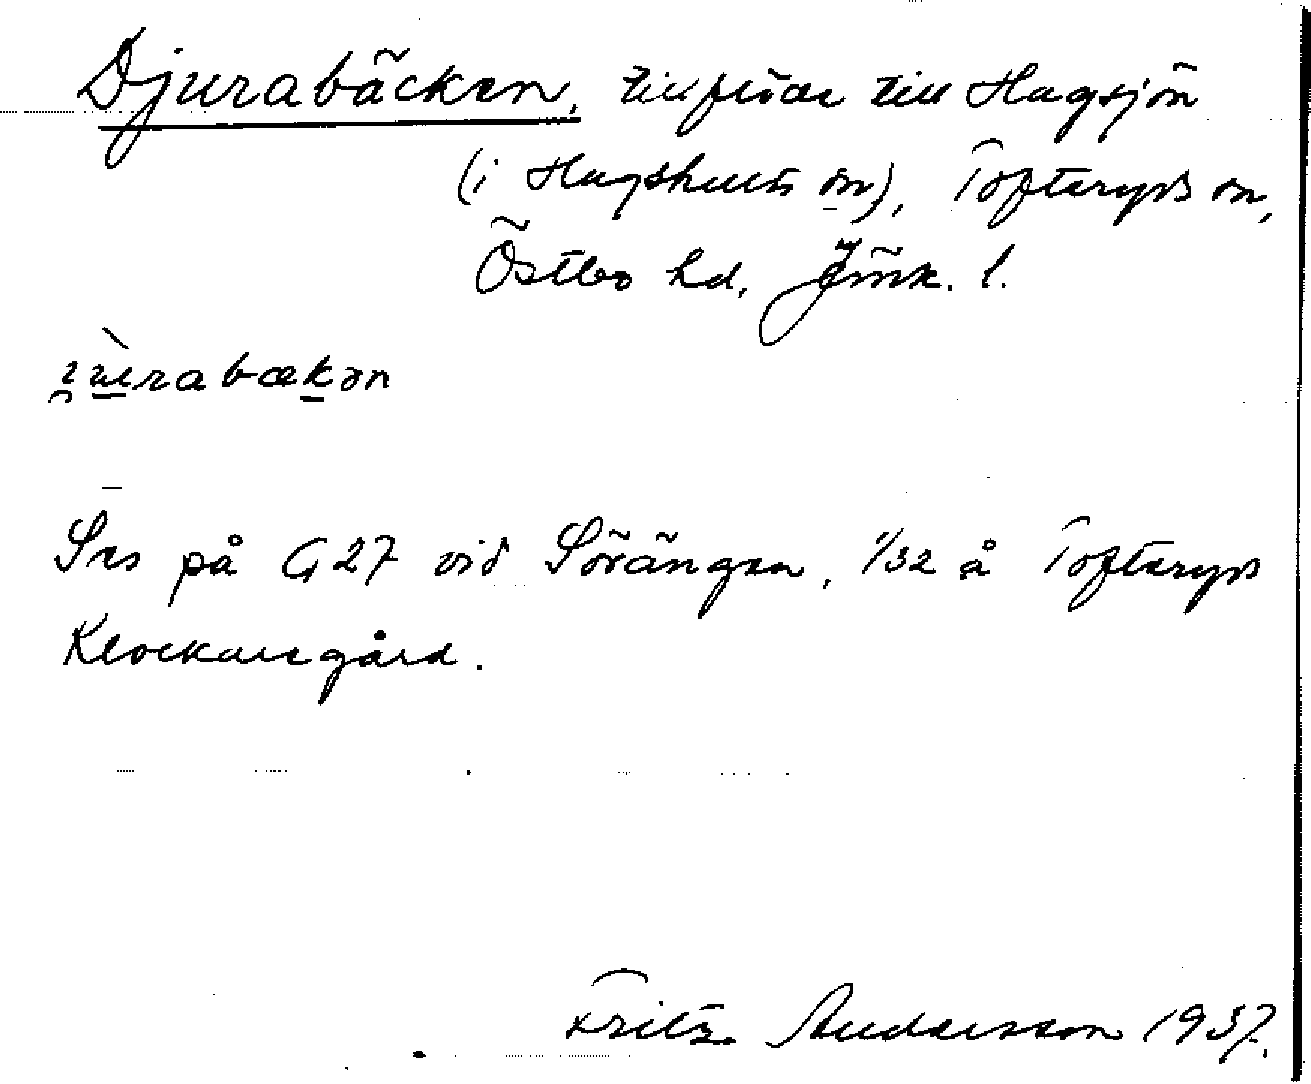 Djurabäcken, tillflöde till Hagsjön
(i Hagshults sn), Tofteryds sn,
Östbo hd, Jönk. l.
Ses på G 27 vid Sörängen, 1/32 å Tofteryds
Klockaregård.
Fritz Andersson 1937.